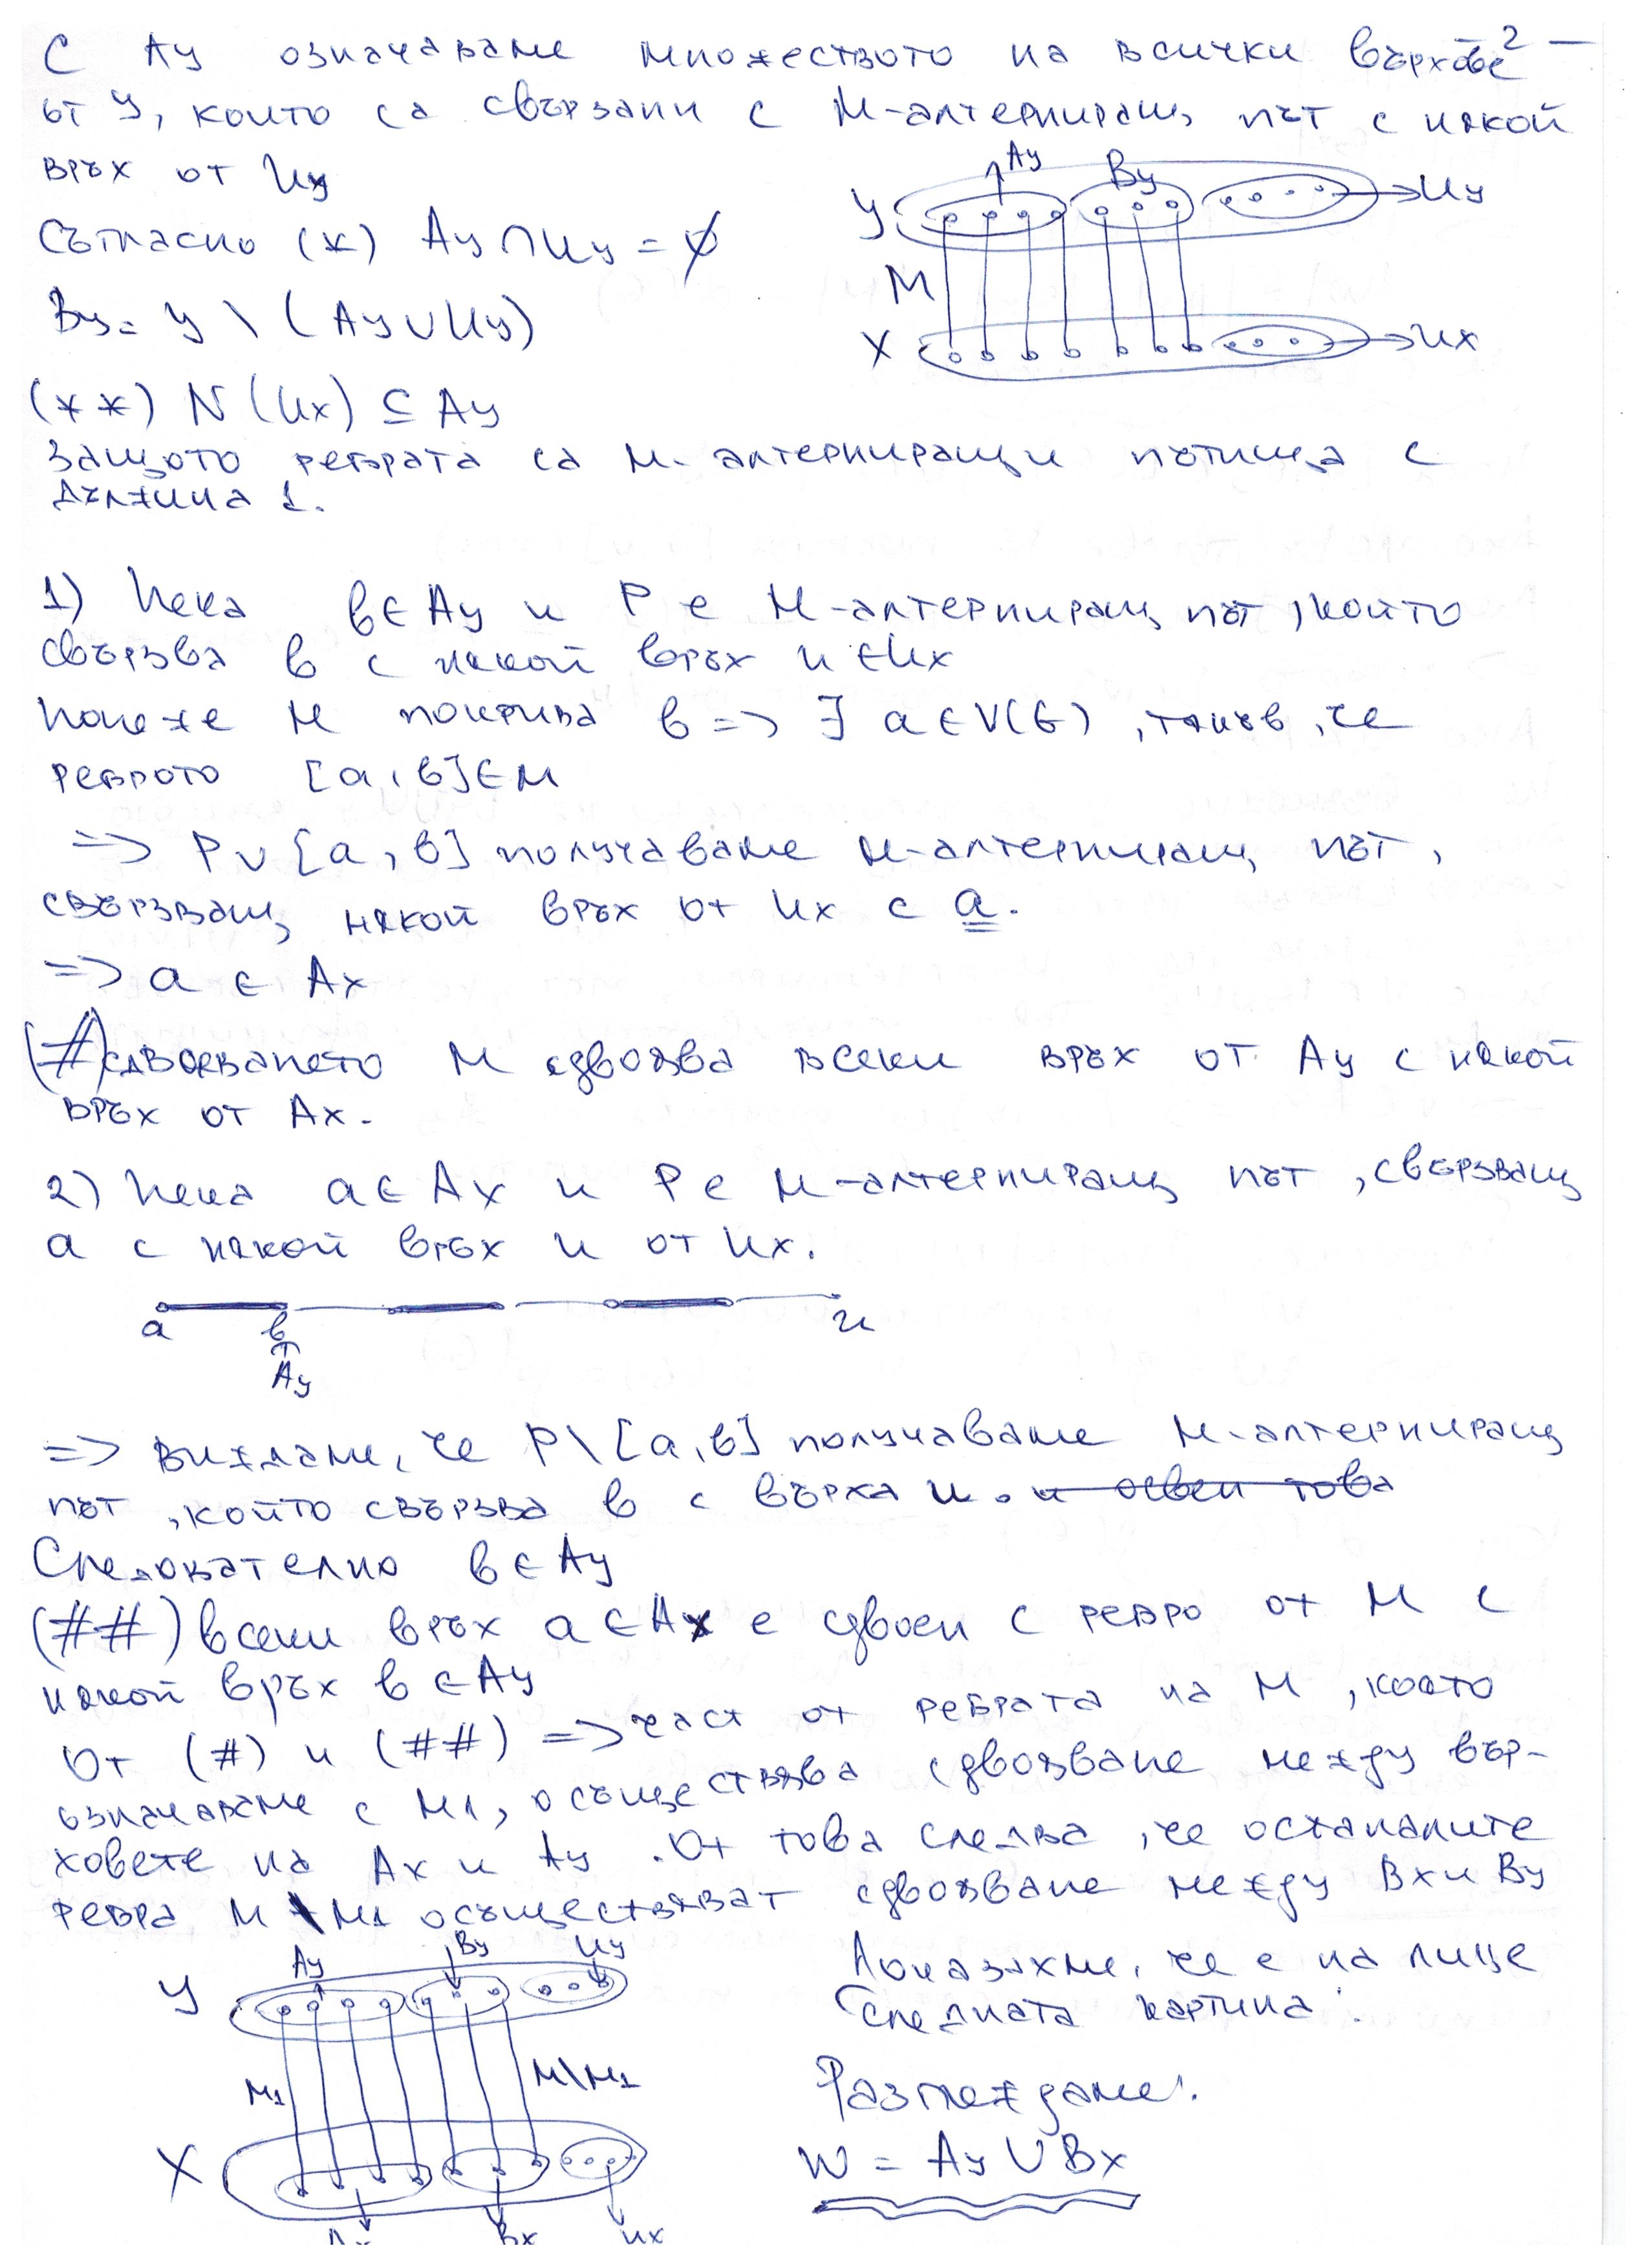 С Ay означаваме множеството на всички върхове 2 —
от Y, които са свързани с M-алтерниращ път с някой
връх от Uy
Съгласно (*) Ay ∩ Uy = ∅
By = Y \ (Ay ∪ Uy)
Ay
By
Uy
Y
M
X
Ux
(**) N(Ux) ⊆ Ay
защото ребрата са M-алтерниращи пътища с
дължина 1.
1) Нека b ∈ Ay и P е M-алтерниращ път, който
свързва b с някой връх u ∈ Ux
Понеже M покрива b => ∃ a ∈ V(G), такъв, че
реброто [a, b] ∈ M
=> P ∪ [a, b] получаваме M-алтерниращ път,
свързващ някой връх от Ux с a.
=> a ∈ Ax
(#) сдвояването M сдвоява всеки връх от Ay с някой
връх от Ax.
2) Нека a ∈ Ax и P е M-алтерниращ път, свързващ
a с някой връх u от Ux.
a b u
Ay
=> Виждаме, че P \ [a, b] получаваме M-алтерниращ
път, който свързва b с върха u. и освен това
Следователно b ∈ Ay
(##) всеки връх a ∈ Ax е сдвоен с ребро от M с
някой връх b ∈ Ay
От (#) и (##) => част от ребрата на M, която
означаваме с M1, осъществява сдвояване между вър-
ховете на Ax и Ay. От това следва, че останалите
ребра M \ M1 осъществяват сдвояване между Bx и By
Ay By Uy
Y
M1 M\M1
X
Ax Bx Ux
Доказахме, че е на лице
следната картина:
Разглеждаме:
W = Ay ∪ Bx